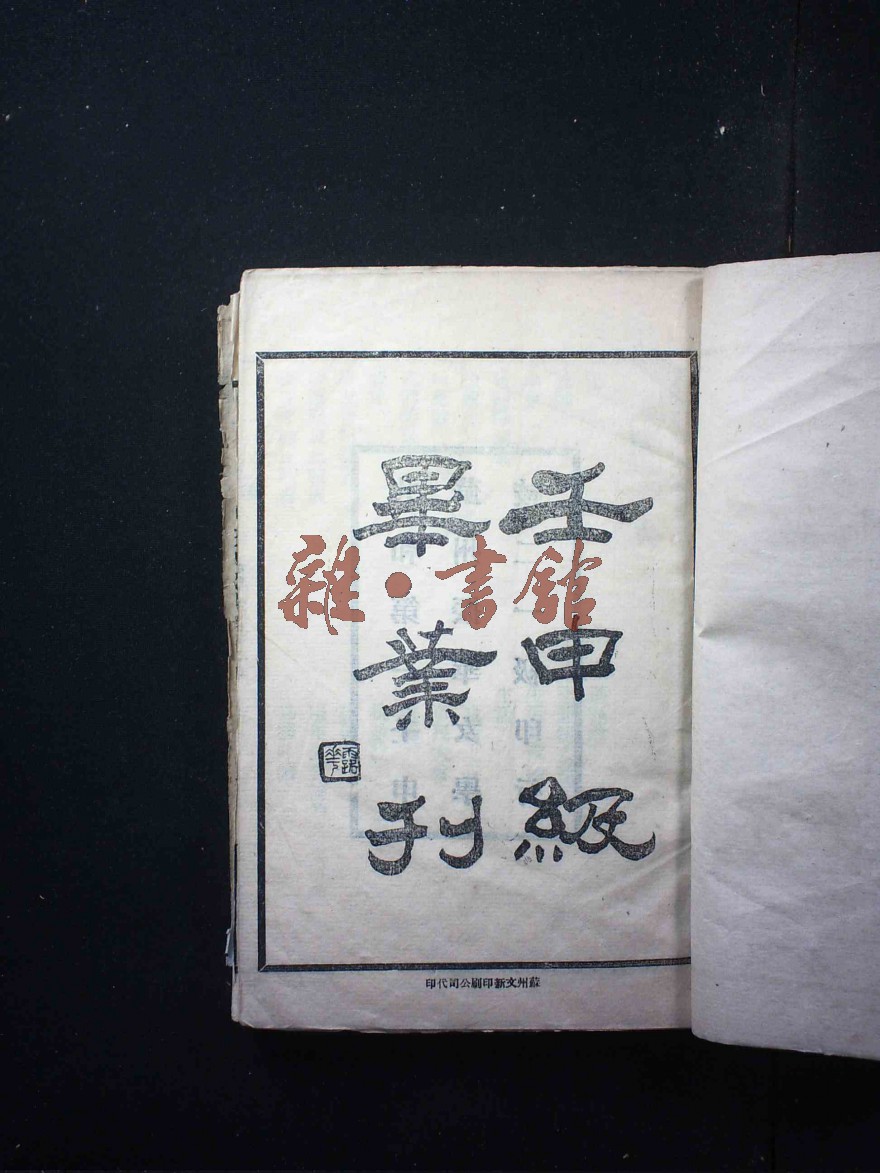 壬申級
畢業刊
雜·書館
蘇州文新印刷公司代印